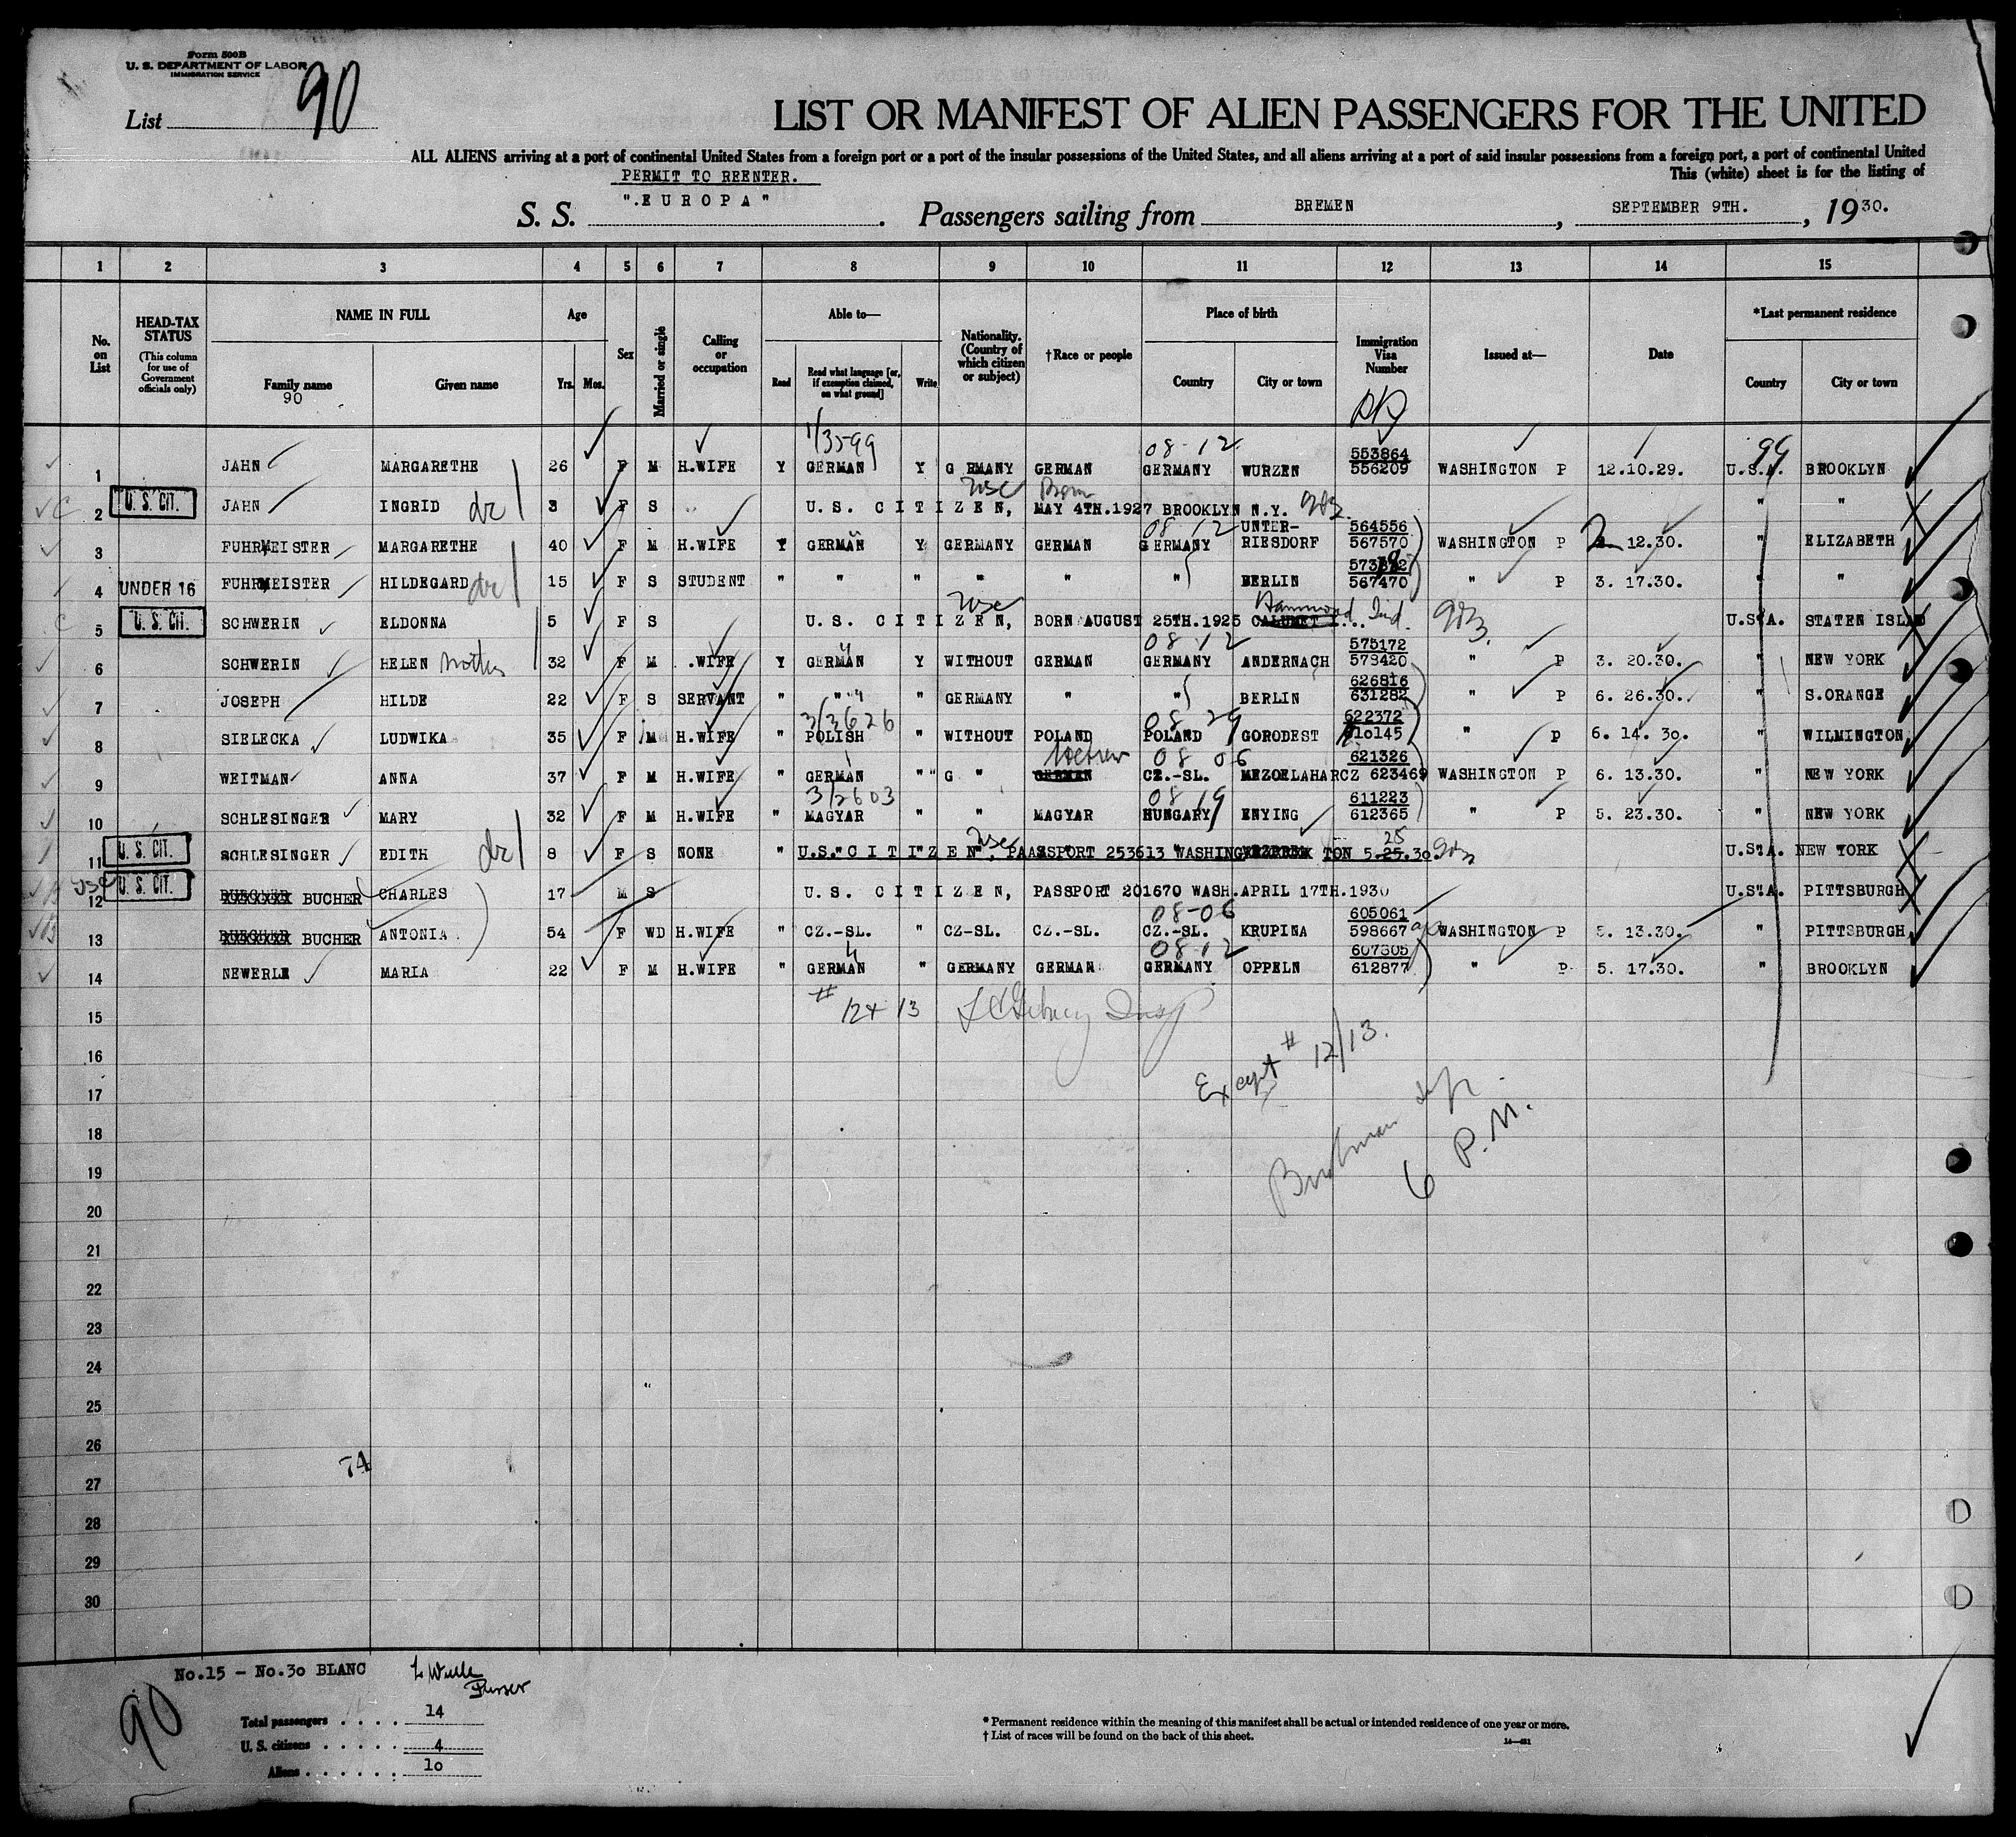 Form 500B
U. S. DEPARTMENT OF LABOR
IMMIGRATION SERVICE
List 90
LIST OR MANIFEST OF ALIEN PASSENGERS FOR THE UNITED
ALL ALIENS arriving at a port of continental United States from a foreign port or a port of the insular possessions of the United States, and all aliens arriving at a port of said insular possessions from a foreign port, a port of continental United
This (white) sheet is for the listing of
PERMIT TO REENTER.
S. S. ".EUROPA". Passengers sailing from BREMEN, SEPTEMBER 9TH., 1930.
1 2 3 4 5 6 7 8 9 10 11 12 13 14 15
No. on List
HEAD-TAX STATUS
(This column for use of Government officials only)
NAME IN FULL
Family name
90
Given name
Age
Yrs. Mos.
Sex
Married or single
Calling or occupation
Able to—
Read
Read what language [or, if exemption claimed, on what ground]
Write
Nationality. (Country of which citizen or subject)
†Race or people
Place of birth
Country
City or town
Immigration Visa Number
Issued at—
Date
*Last permanent residence
Country
City or town
1/3599 08-12 553864 99
1 JAHN MARGARETHE 26 F M H.WIFE Y GERMAN Y G RMANY GERMAN GERMANY WURZEN 556209 WASHINGTON P 12.10.29. U.S.A. BROOKLYN
usc Born
2 U. S. CIT. JAHN INGRID 3 F S U.S. CITIZEN, MAY 4TH.1927 BROOKLYN N.Y. " "
08-12 UNTER- 564556
3 FUHRMEISTER MARGARETHE 40 F M H.WIFE Y GERMAN Y GERMANY GERMAN GERMANY RIESDORF 567570 WASHINGTON P 2 12.30. " ELIZABETH
4 UNDER 16 FUHRMEISTER HILDEGARD 15 F S STUDENT " " " " " " BERLIN 567470 " P 3. 17.30. " "
usc Hammond Ind.
5 U. S. CIT. SCHWERIN ELDONNA 5 F S U.S. CITIZEN, BORN AUGUST 25TH.1925 CALUMET I... U.S.A. STATEN ISLND
08-12 575172
6 SCHWERIN HELEN mother 32 F M .WIFE Y GERMAN Y WITHOUT GERMAN GERMANY ANDERNACH 579420 " P 3. 20.30. " NEW YORK
626816
7 JOSEPH HILDE 22 F S SERVANT " " " GERMANY " " BERLIN 631282 " P 6. 26.30. " S.ORANGE
3/3626 08 29 622372
8 SIELECKA LUDWIKA 35 F M H.WIFE " POLISH " WITHOUT POLAND POLAND GORODEST 610145 " P 6. 14. 30. " WILMINGTON
Hebrew 08 06 621326
9 WEITMAN ANNA 37 F M H.WIFE " GERMAN " " G " GERMAN CZ.-SL. MEZOELAHARCZ 623469 WASHINGTON P 6. 13.30. " NEW YORK
3/2603 08 19 611223
10 SCHLESINGER MARY 32 F M H.WIFE " MAGYAR " " MAGYAR HUNGARY ENYING 612365 " P 5. 23.30. " NEW YORK
usc 25
11 U. S. CIT. SCHLESINGER EDITH 8 F S NONE " U.S. CITIZEN, PAASSPORT 253613 WASHING TON 5.25.30. U.S.A. NEW YORK
usc
12 U. S. CIT. BUCHER CHARLES 17 M S U.S. CITIZEN, PASSPORT 201670 WASH.APRIL 17TH.1930 U.S.A. PITTSBURGH
08-06 605061
13 BUCHER ANTONIA 54 F WD H.WIFE " CZ.-SL. " CZ-SL. CZ.-SL. CZ.-SL. KRUPINA 598667 WASHINGTON P 5. 13.30. " PITTSBURGH
08-12 607305
14 NEWERLE MARIA 22 F M H.WIFE " GERMAN " GERMANY GERMAN GERMANY OPPELN 612877 " P 5. 17.30. " BROOKLYN
15 # 12+13
16 Except # 12/13.
17
18 P.M.
19 6
20
21
22
23
24
25
26 74
27
28
29
30
No.15 - No.30 BLANC
Purser
90
Total passengers . . . . 14
U. S. citizens . . . . . 4
Aliens . . . . . . 10
* Permanent residence within the meaning of this manifest shall be actual or intended residence of one year or more.
† List of races will be found on the back of this sheet.